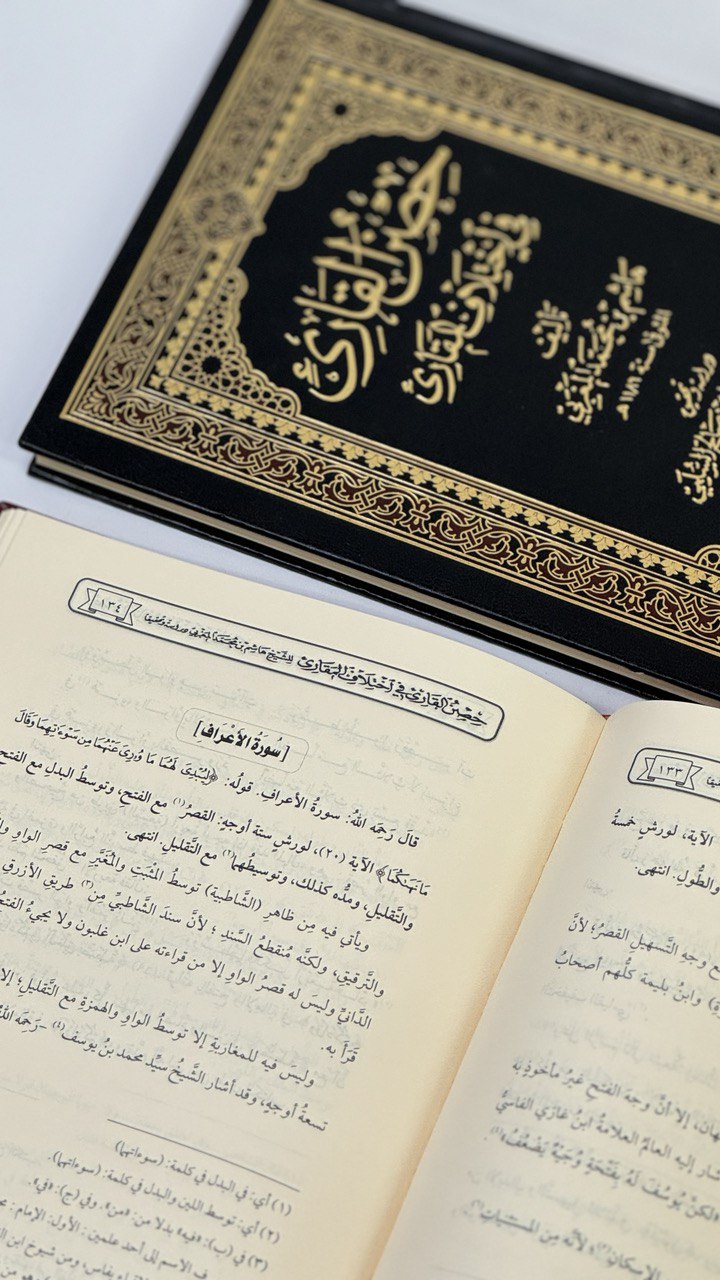 حِصْنُ القَارِئِ
فِي اخْتِلَافِ المَقَارِئِ
تأليف
هاشم بن محمد المغربي
المتوفى سنة ١١٧٩هـ
حِصْنُ القَارِئ فِي اخْتِلَافِ المَقَارِئ للشيخ هَاشِم بن مُحَمَّد المَغرَبِي دراسة وتحقيقا ١٣٤
[سُورَةُ الأَعْرَافِ]
قالَ رَحِمَه اللهُ: سورةُ الأعرافِ. قولُه: ﴿لِيُبْدِيَ لَهُمَا مَا وُۥرِيَ عَنْهُمَا مِن سَوْءَٰتِهِمَا وَقَالَ
مَا نَهَىٰكُمَا﴾ الآية (٢٠)، لورشٍ ستة أوجهٍ: القصرُ(١) مع الفتحِ، وتوسطُ البدلِ مع الفتحِ
والتَّقليلِ، ومدُّه كذلك، وتوسيطُهما(٢) مع التَّقليلِ. انتهى.
ويأتي فيه مِن ظاهرِ (الشاطبية) توسطُ المُثبَتِ والمُغَيَّرِ مع قصرِ الواوِ
والتَّرقيقِ، ولكنَّه مُنقطعُ السَّندِ؛ لأنَّ سندَ الشَّاطبيِّ مِن(٣) طريق الأزرق
الدَّانيُّ وليسَ له قصرُ الواوِ إلا من قراءته على ابن غلبون ولا يجيءُ الفتحُ
قَرَأَ به.
وليسَ فيه للمغاربةِ إلا توسطُ الواوِ والهمزةِ مع التَّقليلِ؛ إلا
تسعةُ أوجهٍ، وقد أشار الشَّيخُ سيِّد محمد بنُ يوسف(٤) -رَحِمَهُ اللهُ
(١) أي: في البدل في كلمة: (سوءاتهما)
(٢) أي: توسط اللين والبدل في كلمة: (سوءاتهما).
(٣) في (ب): «فيه» بدلا من: «من». وفي (ج): «في».
ف الاسم إلى أحد علمين: الأول: الإمام:
بفاس، ومن شيوخ ابن
١٣٣
الآية، لورشٍ خمسةُ
والطُّولِ. انتهى.
مع وجهِ التَّسهيلِ القصرُ؛ لأنَّ
وابنُ بليمة كلُّهم أصحابُ
إلا أنَّ وجهَ الفتحِ غيرُ مأخوذٍ به
إليه العالمُ العلامةُ ابنُ غازي الفاسيُّ
لكنَّ يُوسُفَ لَهُ بِفَتْحَةٍ وُجَيْهٌ يَضْعُفُ
الإسكانِ لأنَّه مِن